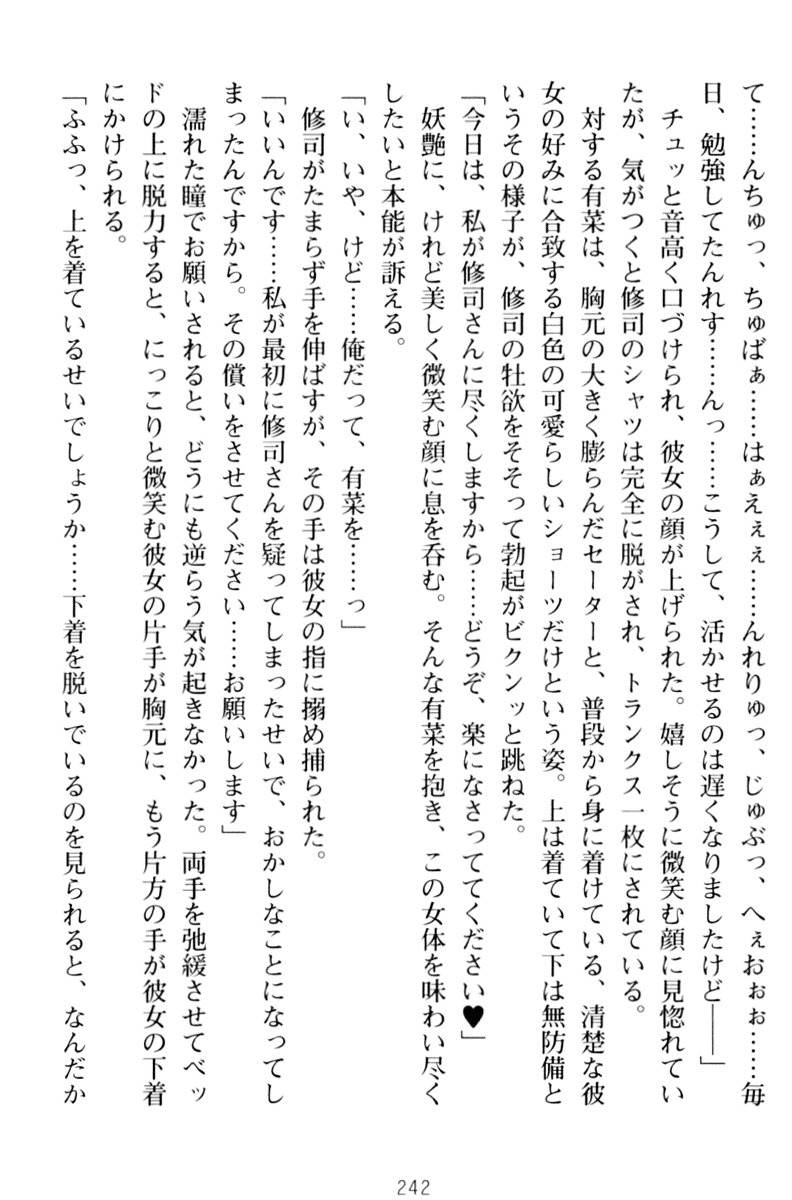 て……んちゅっ、ちゅばぁ……はぁえぇぇ……んれりゅっ、じゅぶっ、へぇおぉぉ……毎
日、勉強してたんれす……んっ……こうして、活かせるのは遅くなりましたけど――」
　チュッと音高く口づけられ、彼女の顔が上げられた。嬉しそうに微笑む顔に見惚れてい
たが、気がつくと修司のシャツは完全に脱がされ、トランクス一枚にされている。
　対する有菜は、胸元の大きく膨らんだセーターと、普段から身に着けている、清楚な彼
女の好みに合致する白色の可愛らしいショーツだけという姿。上は着ていて下は無防備と
いうその様子が、修司の牡欲をそそって勃起がビクンッと跳ねた。
「今日は、私が修司さんに尽くしますから……どうぞ、楽になさってください♥」
　妖艶に、けれど美しく微笑む顔に息を呑む。そんな有菜を抱き、この女体を味わい尽く
したいと本能が訴える。
「い、いや、けど……俺だって、有菜を……っ」
　修司がたまらず手を伸ばすが、その手は彼女の指に搦め捕られた。
「いいんです……私が最初に修司さんを疑ってしまったせいで、おかしなことになってし
まったんですから。その償いをさせてください……お願いします」
　濡れた瞳でお願いされると、どうにも逆らう気が起きなかった。両手を弛緩させてベッ
ドの上に脱力すると、にっこりと微笑む彼女の片手が胸元に、もう片方の手が彼女の下着
にかけられる。
「ふふっ、上を着ているせいでしょうか……下着を脱いでいるのを見られると、なんだか
242